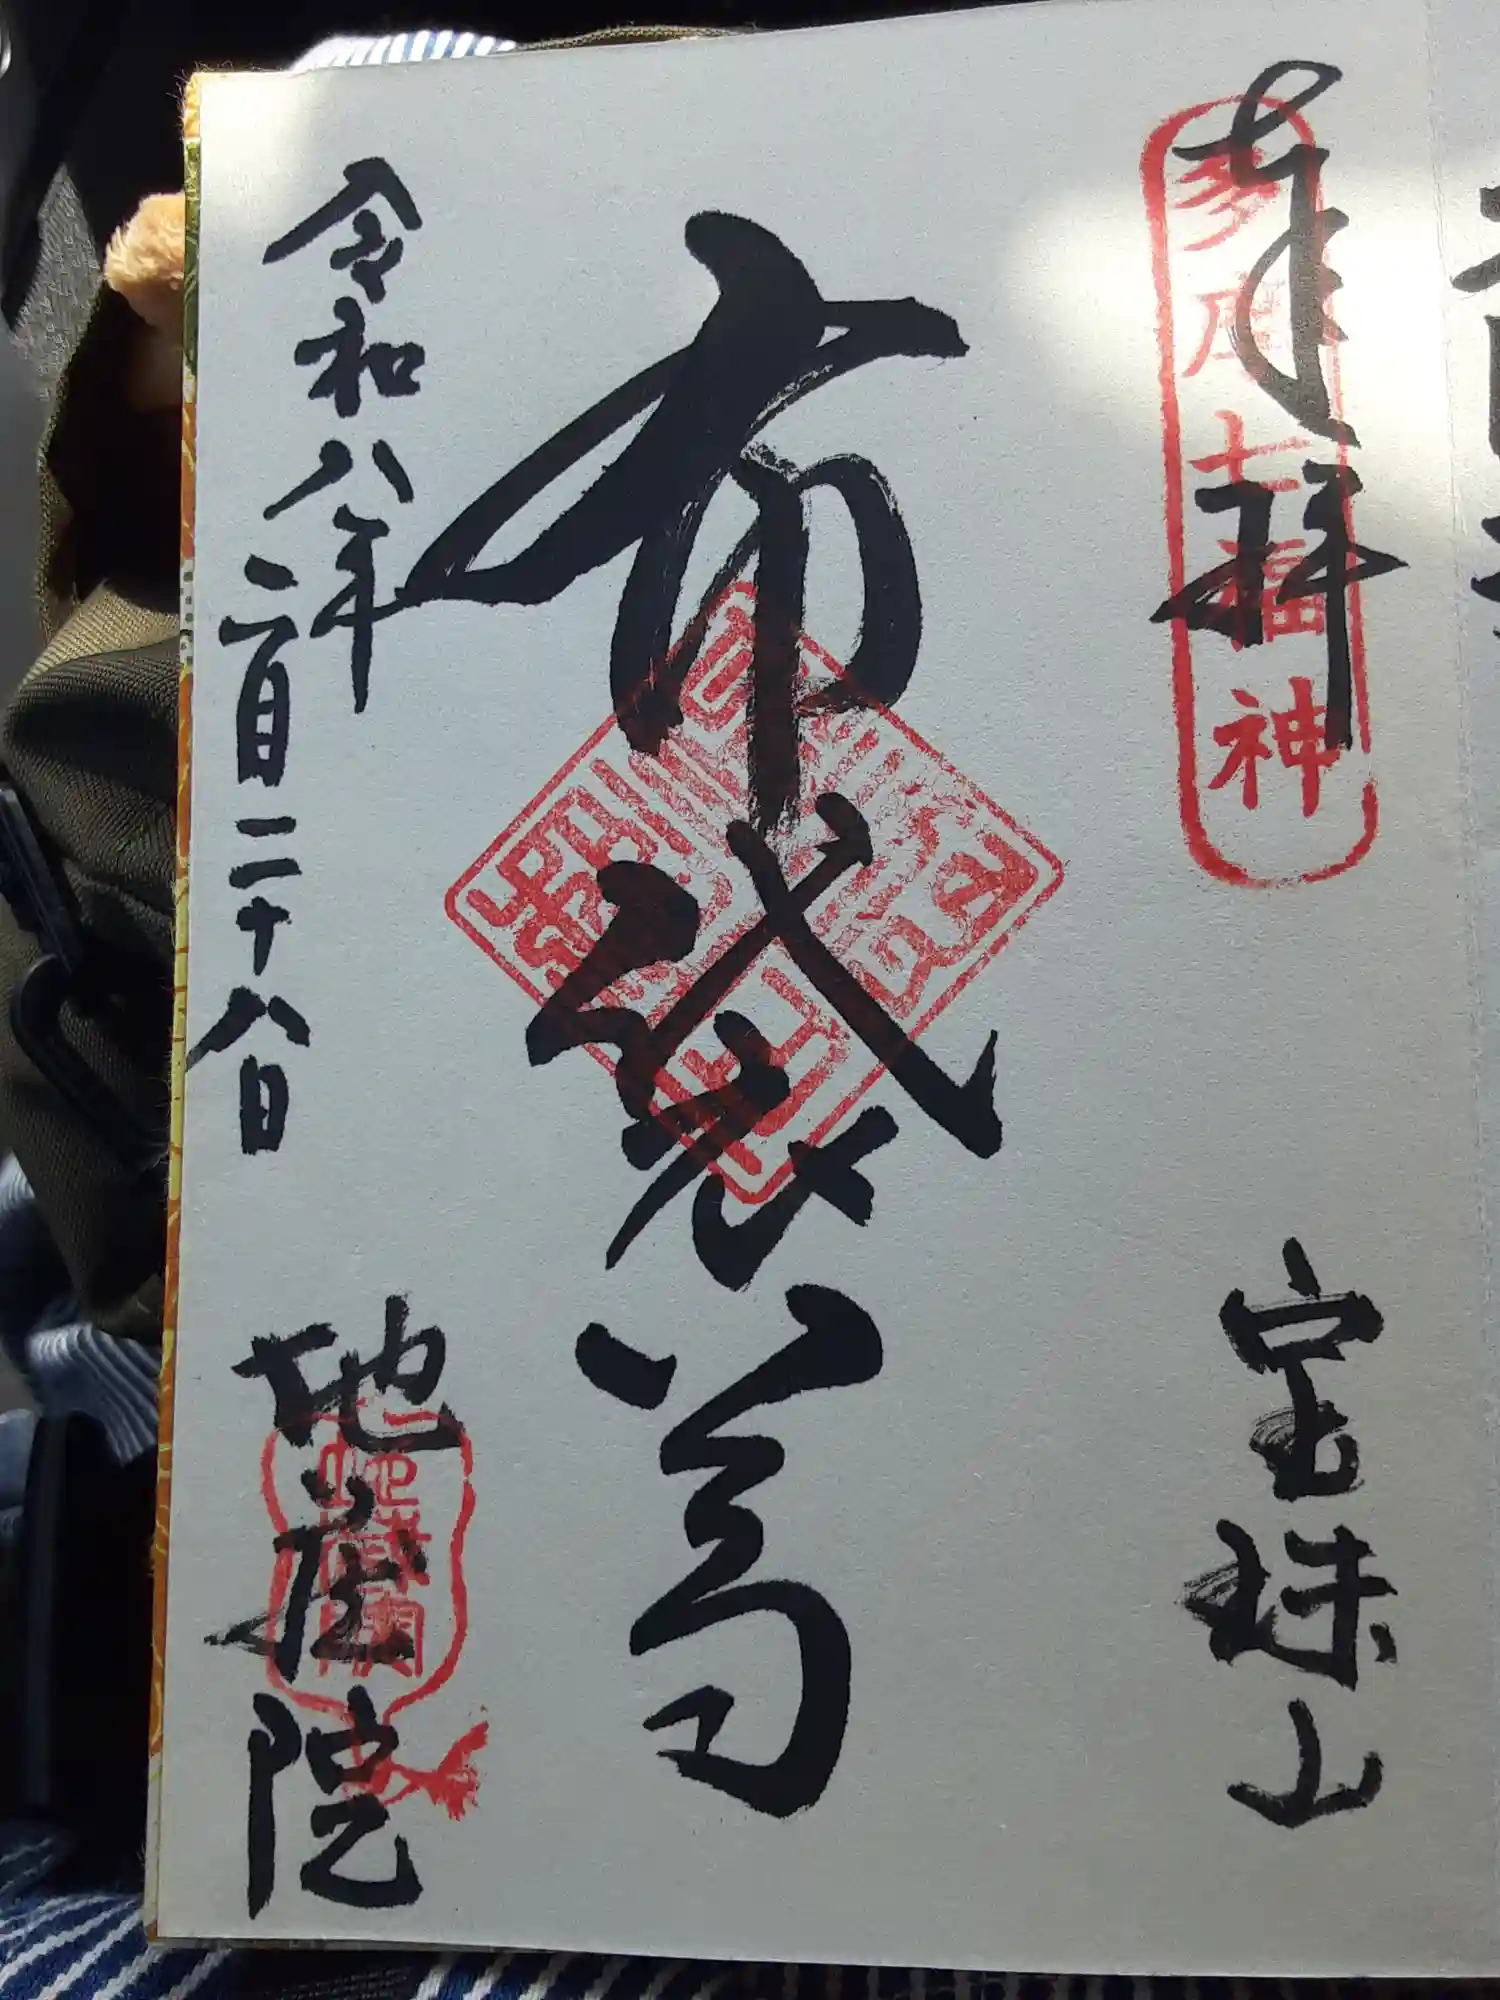 奉拝
多度七福神
宝珠山
布袋尊
令和八年
二月二十八日
地蔵院
地蔵院